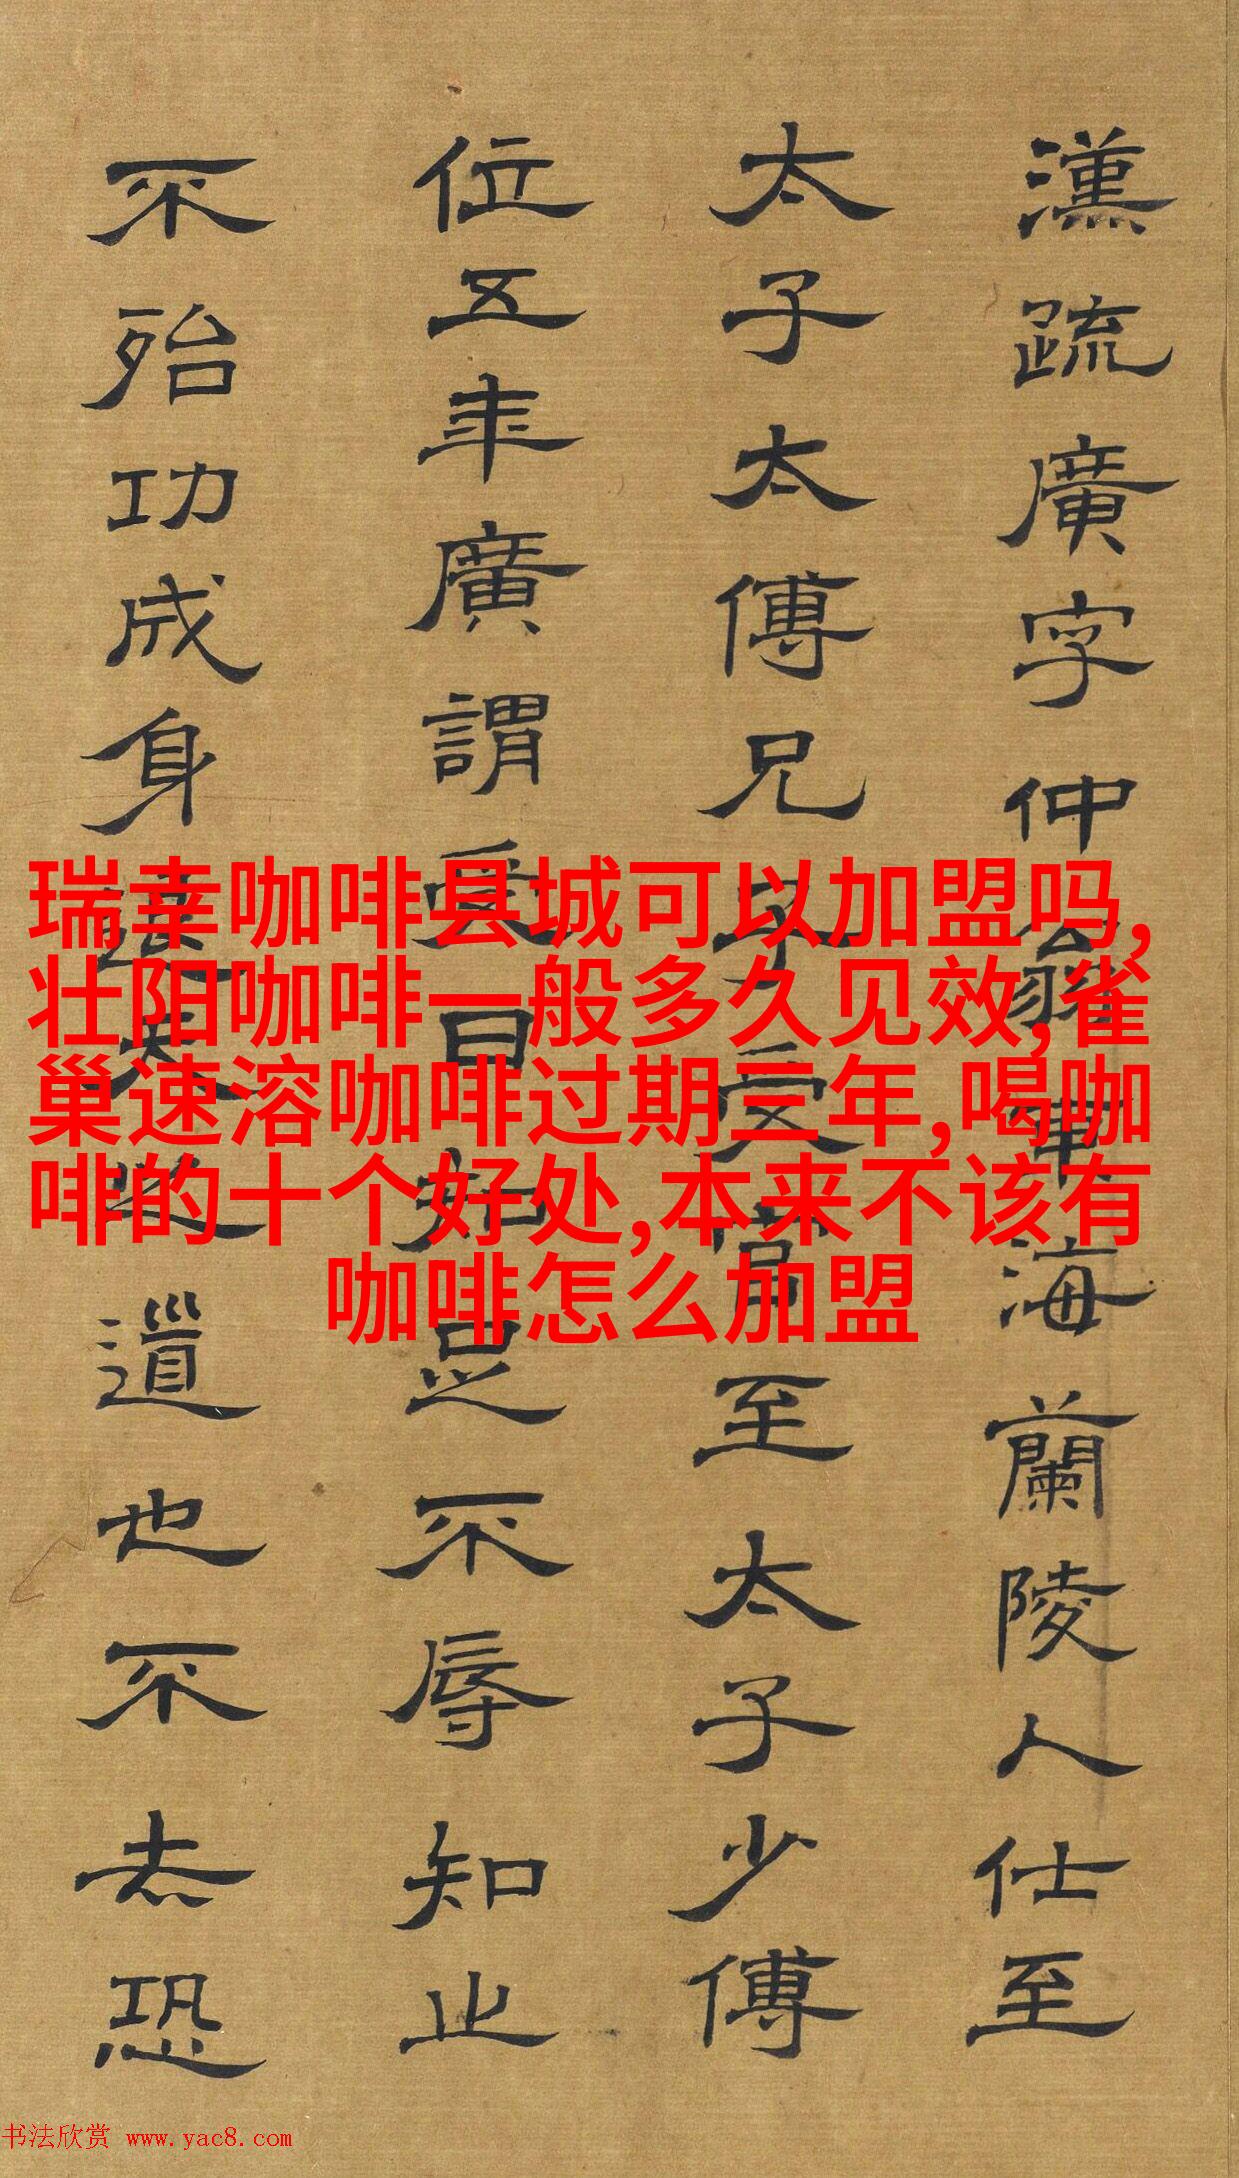 漢疏廣字仲翁東海蘭陵人仕至
太子太傅兄子受官至太子少傅
位五年廣謂受曰知足不辱知止
不殆功成身退天之道也不去恐
瑞幸咖啡县城可以加盟吗,
壮阳咖啡一般多久见效,雀
巢速溶咖啡过期三年,喝咖
啡的十个好处,本来不该有
咖啡怎么加盟
书法欣赏 www.yac8.com